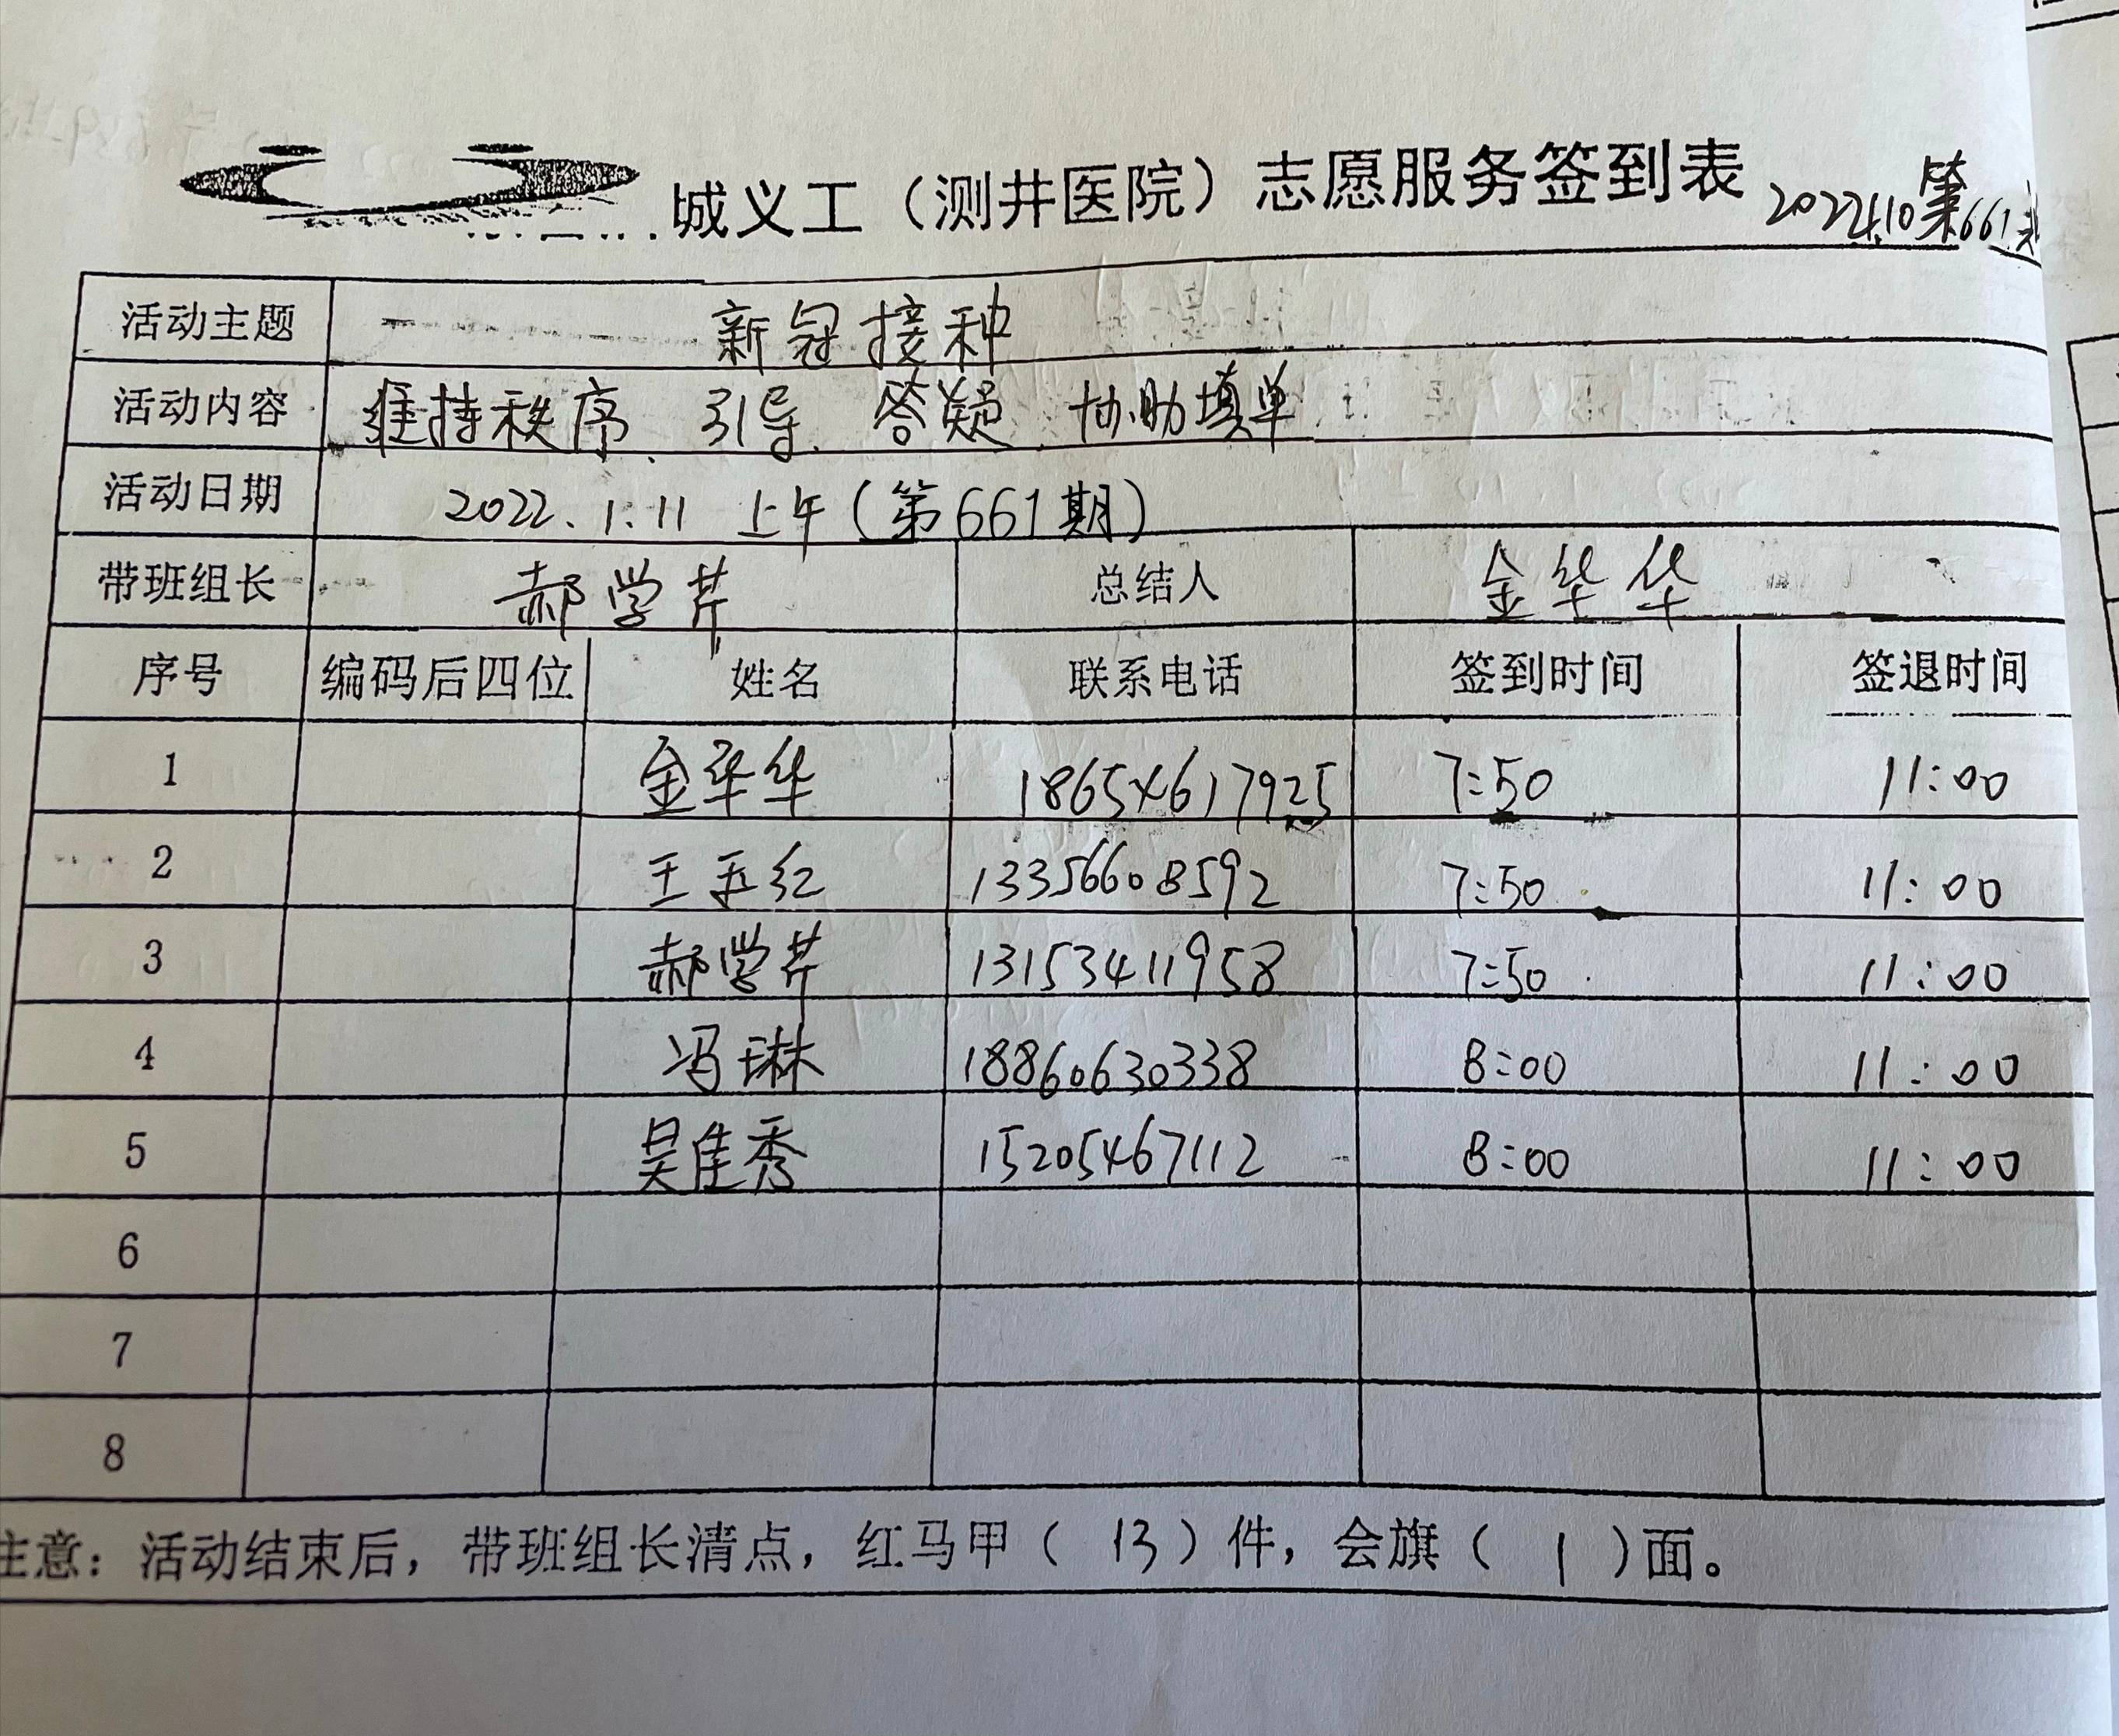 城义工（测井医院）志愿服务签到表 第661
活动主题 新冠接种
活动内容 维持秩序、引导、答疑、协助填单
活动日期 2022.1.11 上午（第661期）
带班组长 郝学芹 总结人 金华华
序号 编码后四位 姓名 联系电话 签到时间 签退时间
1 金华华 18654617925 7:50 11:00
2 王玉红 13356608592 7:50 11:00
3 郝学芹 13153411958 7:50 11:00
4 冯琳 18860630338 8:00 11:00
5 吴佳秀 15205467112 8:00 11:00
6
7
8
注意：活动结束后，带班组长清点，红马甲（ 13 ）件，会旗（ 1 ）面。